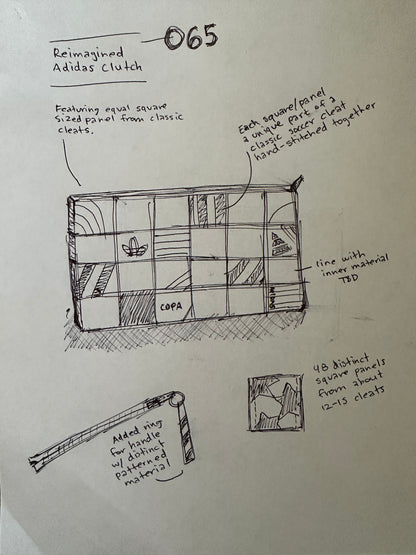 065
Reimagined
Adidas Clutch
Featuring equal square
sized panel from classic
cleats.
Each square/panel
a unique part of a
classic soccer cleat
hand-stitched together
line with
inner material
TBD
COPA
48 distinct
square panels
from about
12-15 cleats
Added ring
for handle
w/ distinct
patterned
material